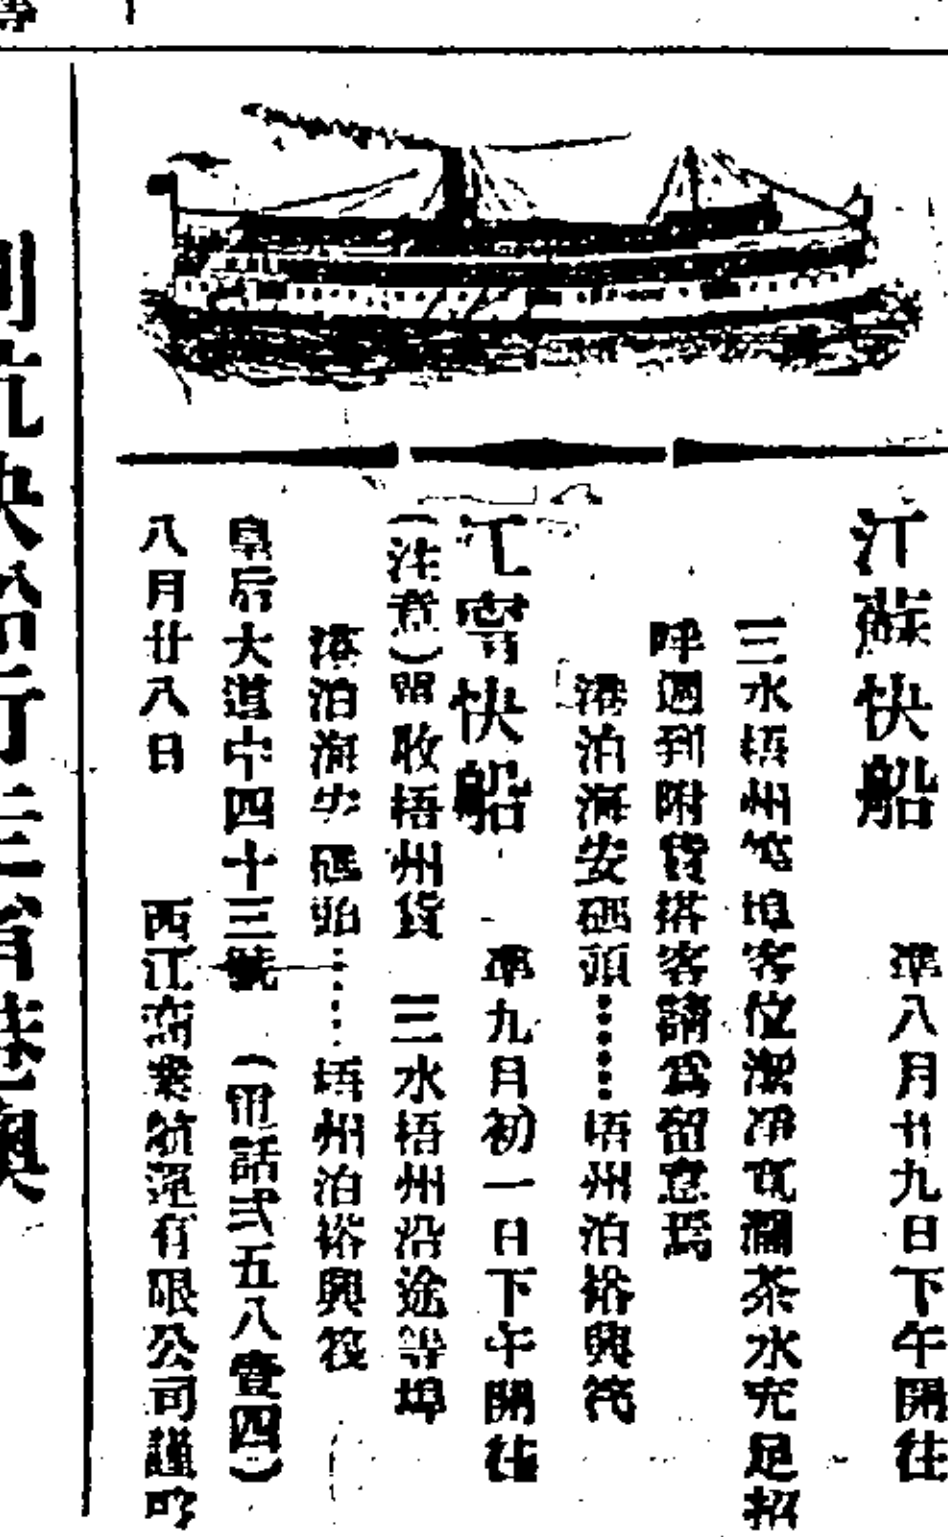 江蘇快船 準八月廿九日下午開往
三水梧州等埠客位潔淨寬闊茶水充足招
呼週到附貨搭客請為留意焉
港泊海安碼頭⋯⋯梧州泊裕興筏
江寧快船 準九月初一日下午開往
(注意)單收梧州貨 三水梧州沿途等埠
港泊海安碼頭⋯⋯梧州泊裕興筏
皇后大道中四十三號 (電話弍五八壹四)
八月廿八日 西江商業航運有限公司謹啓